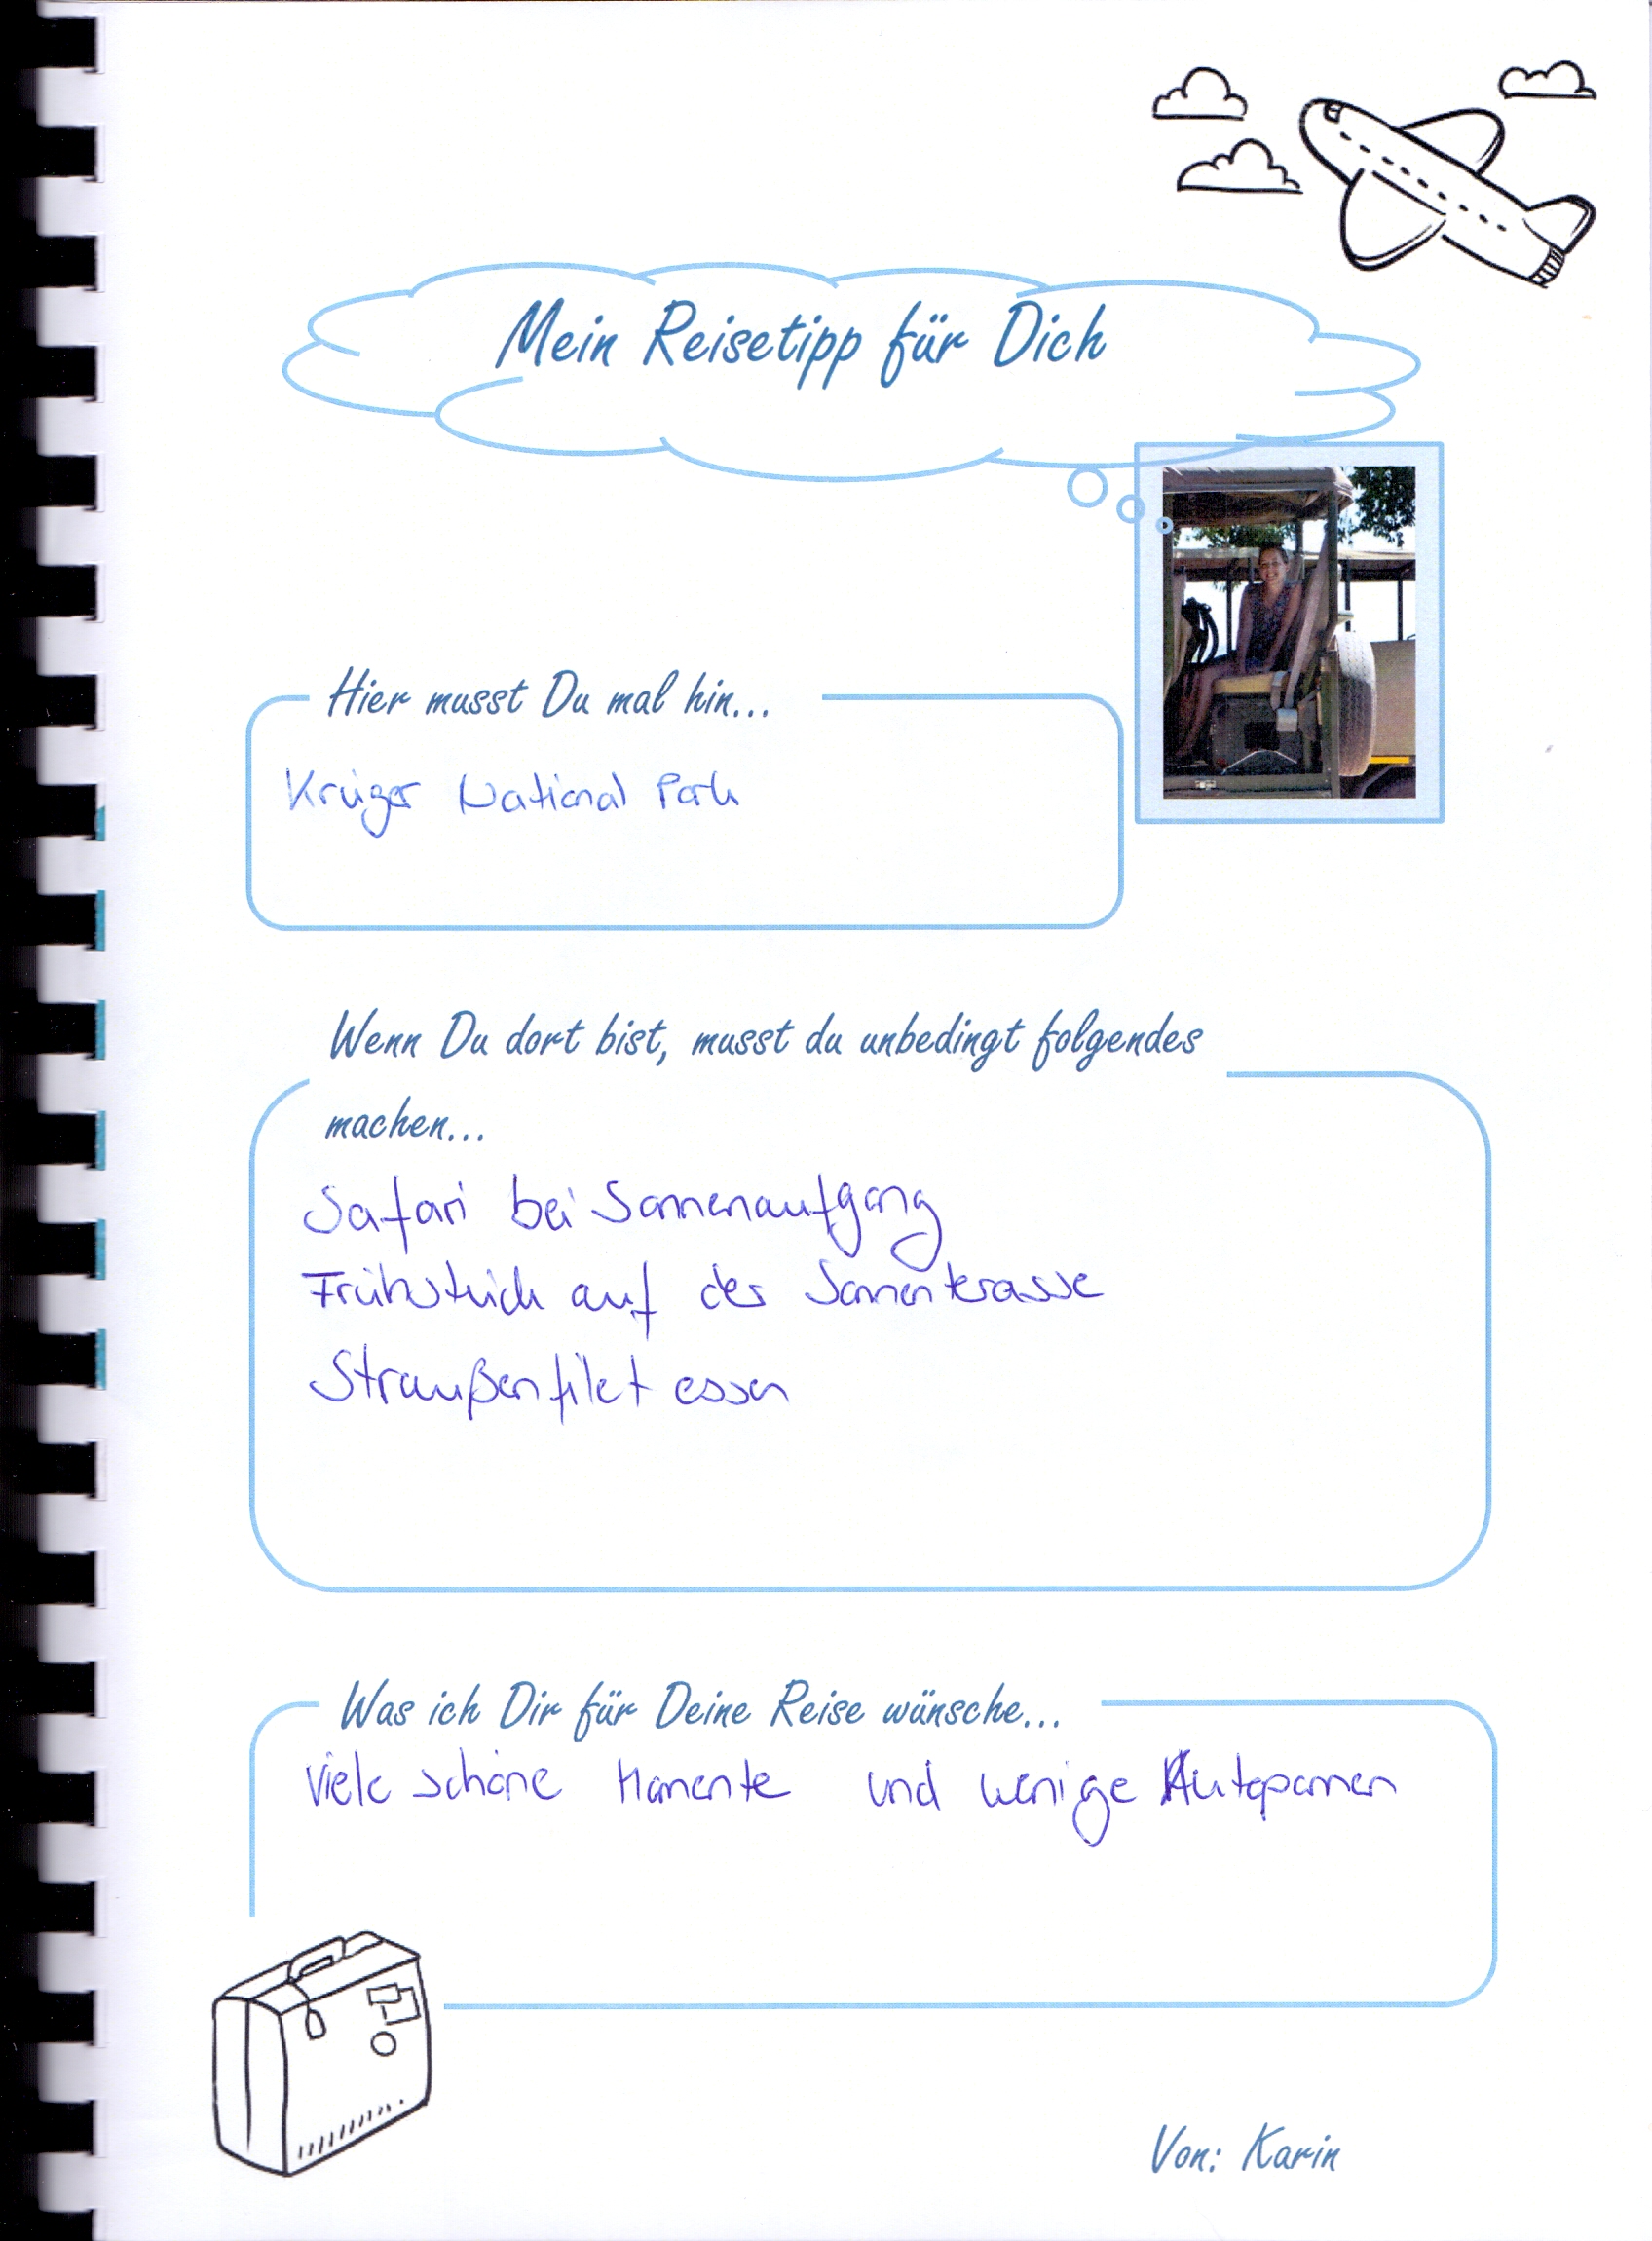 Mein Reisetipp für Dich
Hier musst Du mal hin...
Krüger National Park
Wenn Du dort bist, musst du unbedingt folgendes
machen...
Safari bei Sonnenaufgang
Frühstück auf der Sonnenterasse
Straußenfilet essen
Was ich Dir für Deine Reise wünsche...
Viele schöne Momente und wenige Autopannen
Von: Karin